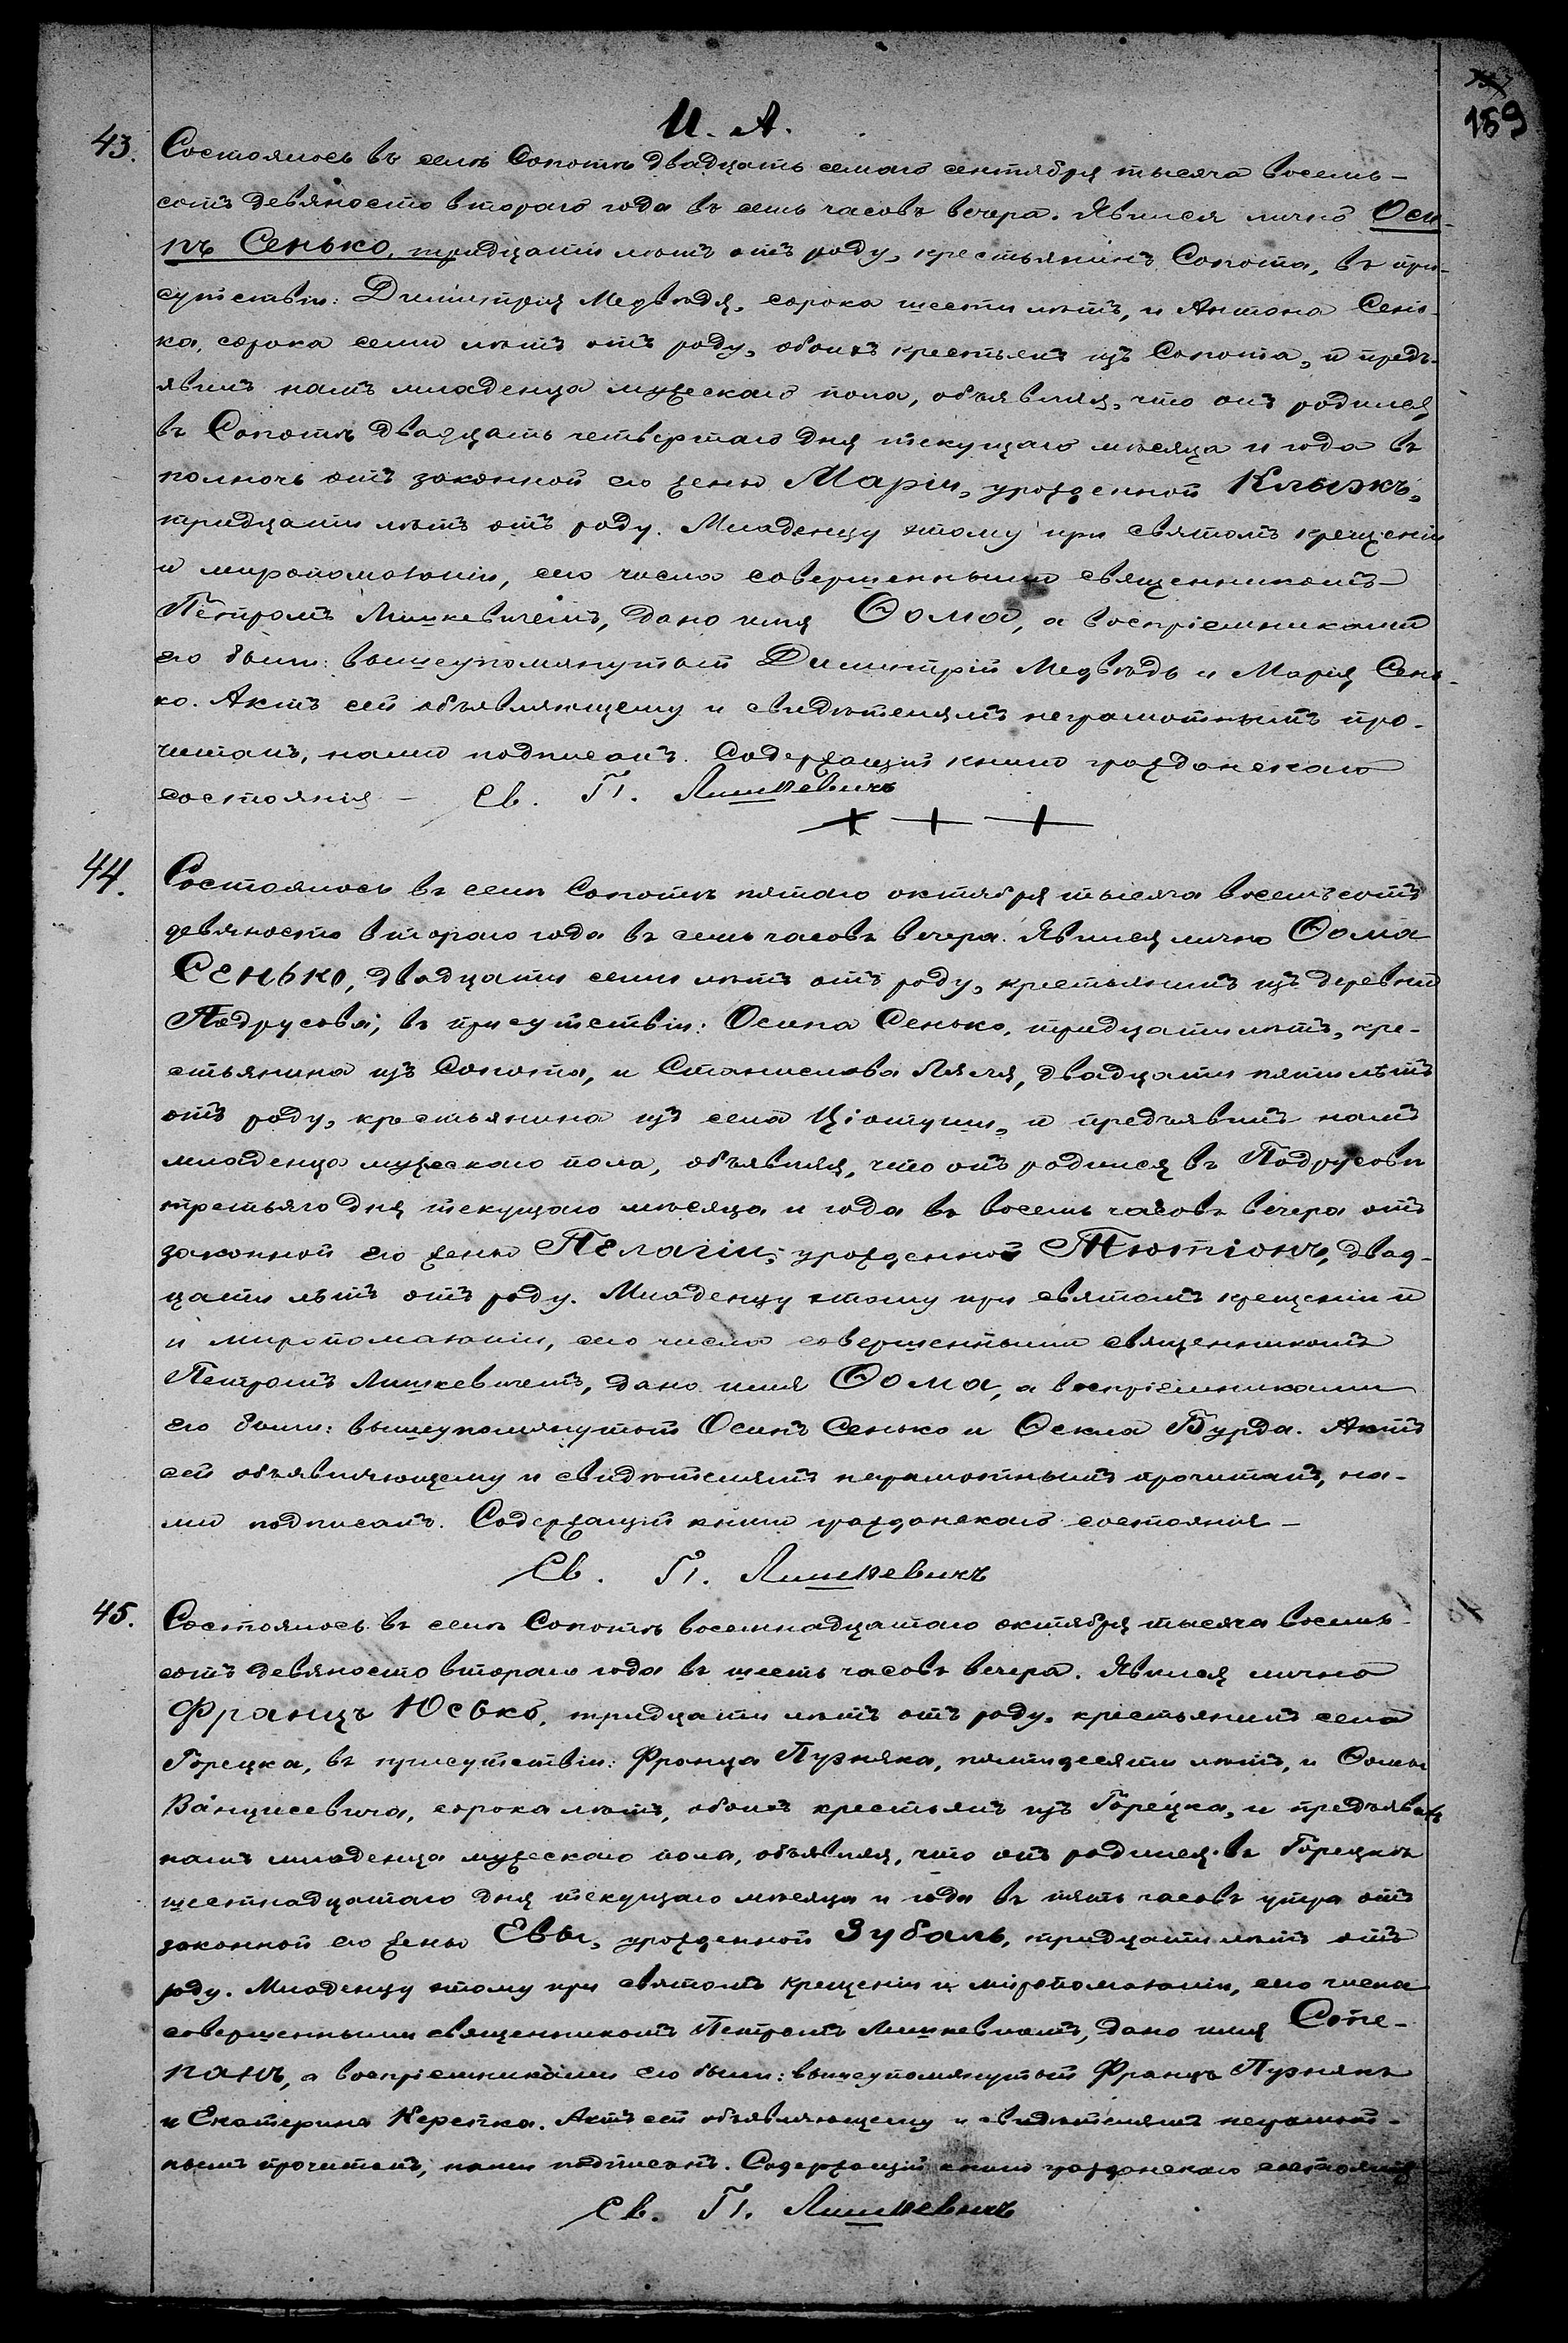 И. А.
159
43. Состоялось въ селѣ Сопотѣ двадцать седьмаго сентября тысяча восемь-
сотъ девяносто втораго года въ семь часовъ вечера. Явился лично Оси-
пъ Сенько, тридцати лѣтъ отъ роду, крестьянинъ Сопота, въ при-
сутствіи: Димитрія Медвѣдя, сорока шести лѣтъ, и Антона Сень-
ка, сорока семи лѣтъ отъ роду, обоихъ крестьянъ изъ Сопота, и предъ-
явилъ намъ младенца мужескаго пола, объявляя, что онъ родился
въ Сопотѣ двадцать четвертаго дня текущаго мѣсяца и года въ
полночь отъ законной его жены Маріи, урожденной Клыжъ,
тридцати лѣтъ отъ роду. Младенцу этому при святомъ крещеніи
и миропомазаніи, сего числа совершенными священникомъ
Петромъ Лишкевичемъ, дано имя Ѳома, а воспріемниками
его были: вышеупомянутый Димитрій Медвѣдь и Марія Сень-
ко. Актъ сей объявляющему и свидѣтелямъ неграмотнымъ про-
читанъ, нами подписанъ. Содержащій книги гражданскаго
состоянія – Св. П. Лишкевичъ
44. Состоялось въ селѣ Сопотѣ пятаго октября тысяча восемьсотъ
девяносто втораго года въ семь часовъ вечера. Явился лично Ѳома
Сенько, двадцати семи лѣтъ отъ роду, крестьянинъ изъ деревни
Подрусовы, въ присутствіи: Осипа Сенько, тридцати лѣтъ, кре-
стьянина изъ Сопота, и Станислава Ляля, двадцати пяти лѣтъ
отъ роду, крестьянина изъ села Ціотуши, и предъявилъ намъ
младенца мужескаго пола, объявляя, что онъ родился въ Подрусовѣ
третьяго дня текущаго мѣсяца и года въ восемь часовъ вечера отъ
законной его жены Пелагіи, урожденной Тютіонъ, двад-
цати лѣтъ отъ роду. Младенцу этому при святомъ крещеніи и
и миропомазаніи, сего числа совершенными священникомъ
Петромъ Лишкевичемъ, дано имя Ѳома, а воспріемниками
его были: вышеупомянутый Осипъ Сенько и Ѳекла Бурда. Актъ
сей объявляющему и свидѣтелямъ неграмотнымъ прочитанъ, на-
ми подписанъ. Содержащій книги гражданскаго состоянія –
Св. П. Лишкевичъ
45. Состоялось въ селѣ Сопотѣ восемнадцатаго октября тысяча восемь-
сотъ девяносто втораго года въ шесть часовъ вечера. Явился лично
Францъ Юсько, тридцати лѣтъ отъ роду, крестьянинъ села
Горецка, въ присутствіи: Франца Пузняка, пятидесяти лѣтъ, и Ѳомы
Ванцисевича, сорока лѣтъ, обоихъ крестьянъ изъ Горецка, и предъявилъ
намъ младенца мужескаго пола, объявляя, что онъ родился въ Горецкѣ
шестнадцатаго дня текущаго мѣсяца и года въ пять часовъ утра отъ
законной его жены Евы, урожденной Зубаль, тридцати лѣтъ отъ
роду. Младенцу этому при святомъ крещеніи и миропомазаніи, сего числа
совершенными священникомъ Петромъ Лишкевичемъ, дано имя Сте-
панъ, а воспріемниками его были: вышеупомянутый Францъ Пузнякъ
и Екатерина Керепка. Актъ сей объявляющему и свидѣтелямъ неграмот-
нымъ прочитанъ, нами подписанъ. Содержащій книги гражданскаго состоянія
Св. П. Лишкевичъ